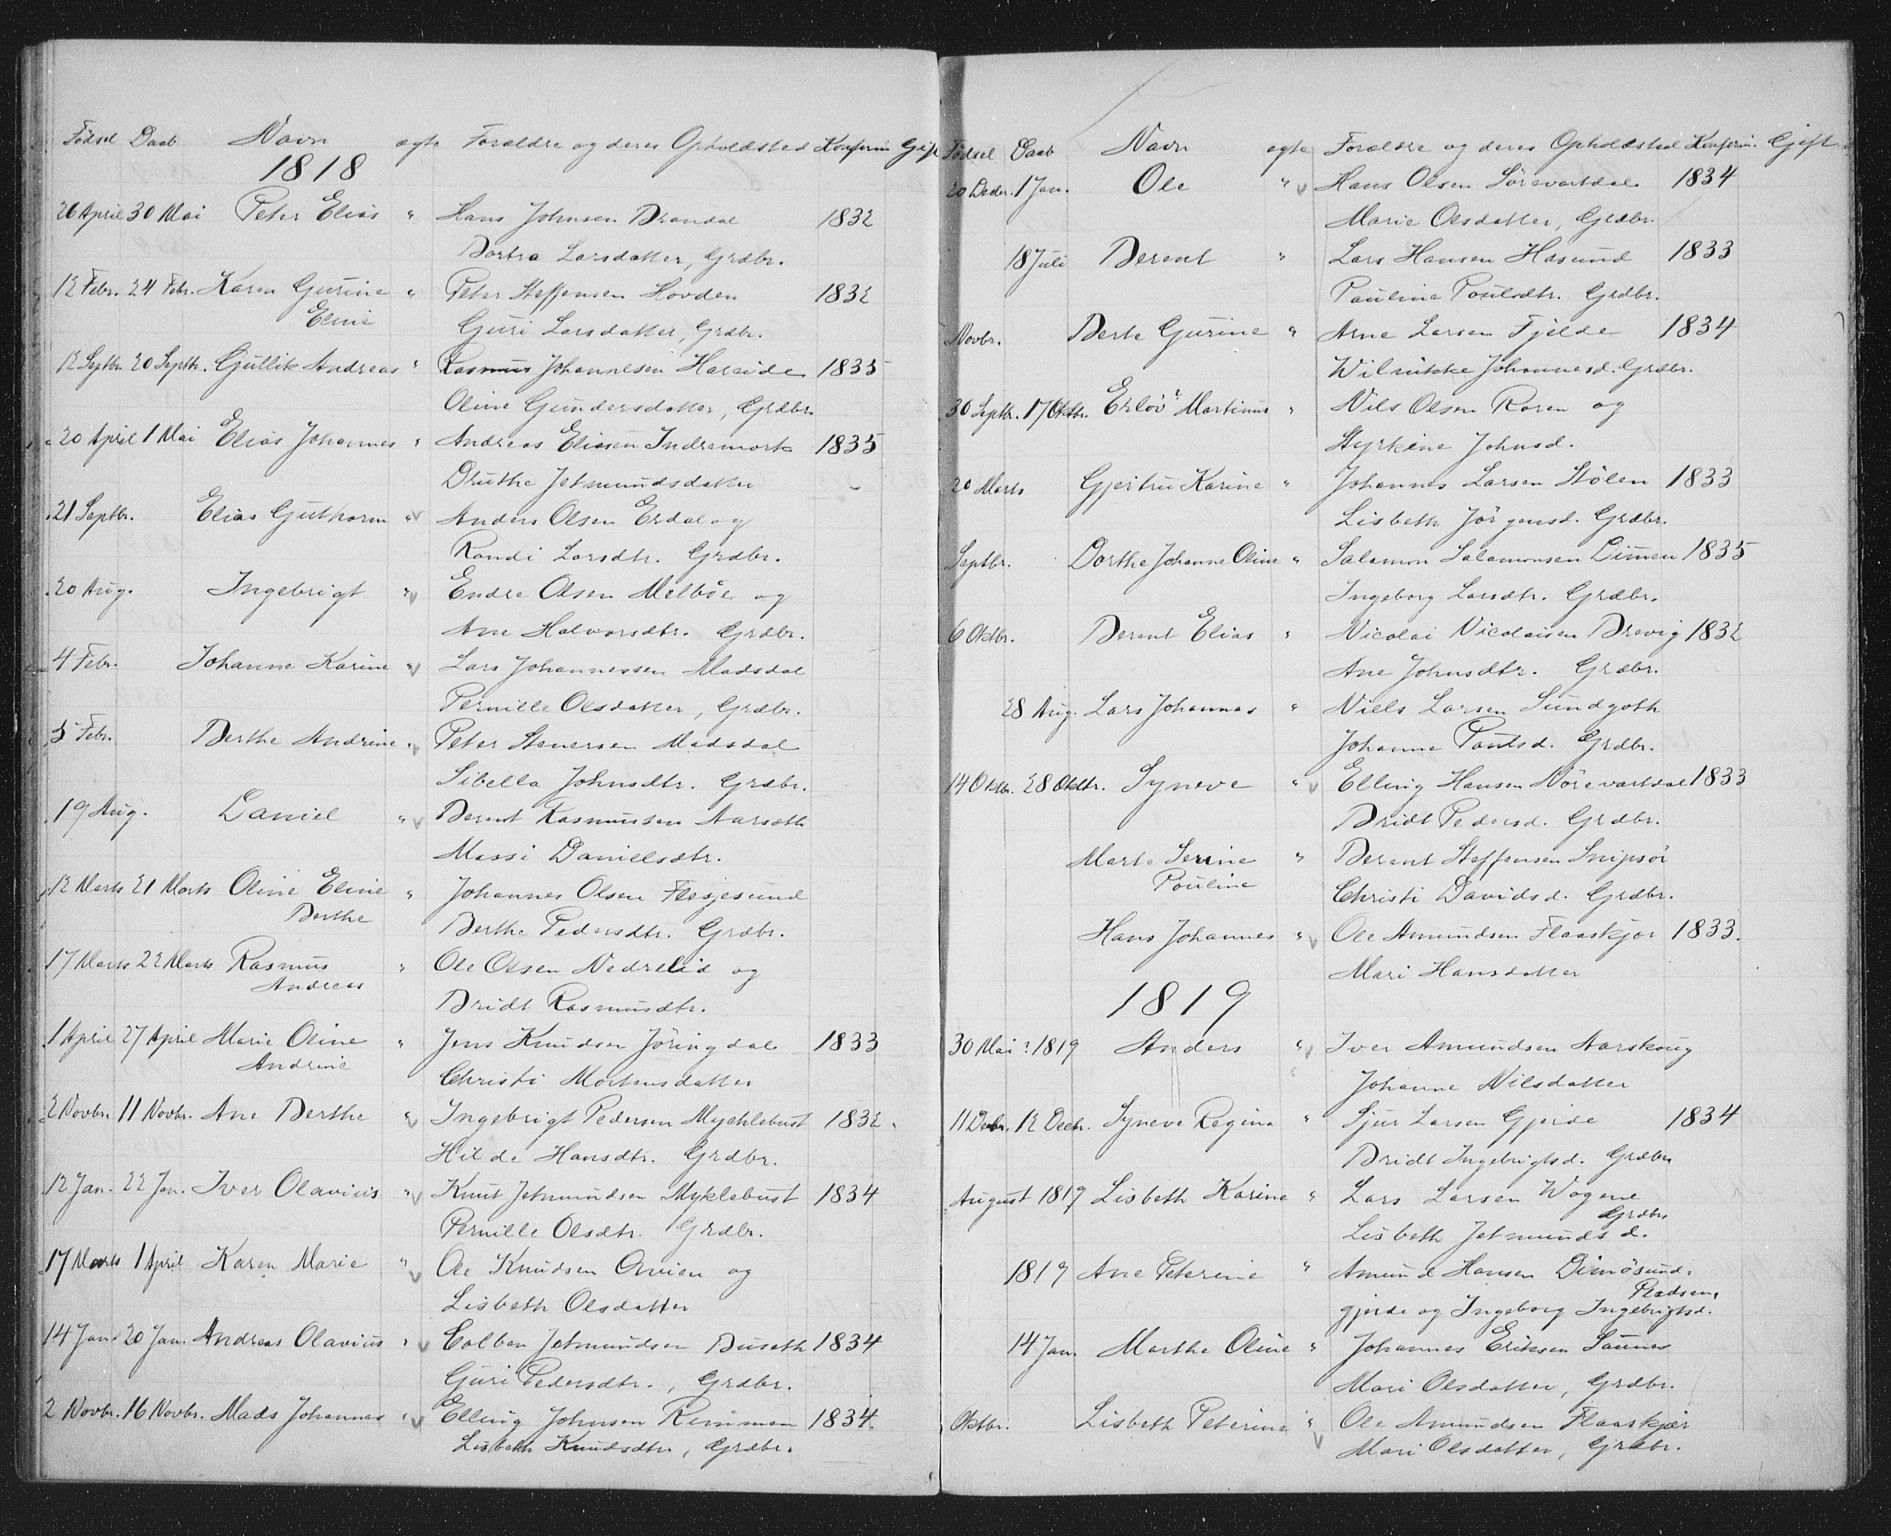 Fødsel Daab Navn ægte Forældre og deres Opholdssted Konfirm Gift
1818
26 April 30 Mai Peter Elias " Hans Johnsen Brandal 1832
Bertra Larsdatter, Grdbr.
12 Febr. 24 Febr. Karen Gurine " Peter Steffensen Hovden 1832
Eline Guri Larsdatter, Grdbr.
12 Septbr. 20 Septbr. Gullik Andreas " Rasmus Johannesen Hareide 1835
Oline Gundersdatter, Grdbr.
20 April 1 Mai Elias Johannes " Andreas Eliesen Indremork 1835
Druthe Jetmundsdatter
21 Septbr. Elias Guthorm " Anders Olsen Erdal og
Randi Larsdtr. Grdbr.
20 Aug. Ingebrigt " Endre Olsen Melbøe og
Ane Halvorsdtr. Grdbr.
4 Febr. Johanne Karine " Lars Johannessen Madsdal
Pernille Olsdatter, Grdbr.
5 Febr. Berthe Andrine " Peter Stenersen Madsdal
Sibella Johnsdtr. Grdbr.
19 Aug. Daniel " Berent Rasmussen Aarseth
Massi Danielsdtr.
12 Marts 21 Marts Oline Eline " Johannes Olsen Flesjesund
Berthe Berthe Pedersdtr. Grdbr.
17 Marts 22 Marts Rasmus " Ole Olsen Nedrelid og
Andreas Bridt Rasmusdtr.
1 April 27 April Marie Oline " Jens Knudsen Jøringdal 1833
Andrine Christi Mortensdatter
2 Novbr. 11 Novbr. Ane Berthe " Ingebrigt Pedersen Mychlebust 1832.
Hilde Hansdtr. Grdbr.
12 Jan. 22 Jan. Iver Olavius " Knut Jetmundsen Myklebust 1834
Pernille Olsdtr. Grdbr.
17 Marts 1 April Karen Marie " Ole Knudsen Qvien og
Lisbeth Olsdatter
14 Jan. 20 Jan. Andreas Olavius " Colben Jetmundsen Buseth 1834
Guri Pedersdtr., Grdbr.
2 Novbr. 16 Novbr. Mads Johannes " Elling Johnsen Remman 1834.
Lisbeth Knudsdtr, Grdbr.
Fødsel Daab Navn ægte Forældre og deres Opholdssted Konfirm. Gift
20 Decbr. 1 Jan. Ole " Hans Olsen Sørevartdal 1834
Marie Olsdatter, Grdbr.
18 Juli Berent " Lars Hansen Hasund 1833
Pauline Poulsdtr. Grdbr.
Novbr. Berte Gurine " Arne Larsen Fjelde 1834
Wilmikke Johannesd. Grdbr.
30 Septbr. 17 Oktbr. Erlov Martinus " Nils Olsen Raren og
Styrkine Johnsd.
20 Marts Gjertru Karine " Johannes Larsen Stølen 1833
Lisbeth Jørgensd. Grdbr.
Septbr. Dorthe Johanne Oline " Salamon Salamonsen Dimen 1835
Ingeborg Larsdtr. Grdbr.
6 Oktbr. Berent Elias " Nicolai Nicolaisen Brevig 1832
Ane Johnsdtr. Grdbr.
28 Aug. Lars Johannes " Niels Larsen Sundgoth
Johanne Poulsd. Grdbr.
14 Oktbr. 28 Oktbr. Syneve " Elling Hansen Nørevartdal 1833
Bridt Pedersd. Grdbr.
Marte Serine " Berent Steffensen Snipsør
Pouline Christi Davidsd. Grdbr.
Hans Johannes " Ole Amundsen Flaaskjær 1833.
Mari Hansdatter
1819
30 Mai: 1819 Anders " Iver Amundsen Aarskoug
Johanne Nilsdatter
11 Decbr. 12 Decbr. Syneve Regina " Sjur Larsen Gjerde 1834
Bridt Ingebrigtsd. Grdbr
August 1819 Lisbeth Karine " Lars Larsen Wogene
Grdbr
Lisbeth Jetmundsd.
1819 Ane Peterine " Amund Hansen Dimøsund.
Pladsen.
gjerde og Ingeborg Ingebrigtsd.
14 Jan. Marthe Oline " Johannes Eriksen Saunes
Mari Olsdatter, Grdbr.
Oktbr. Lisbeth Peterine " Ole Amundsen Flaaskjær
Mari Olsdatter, Grdbr.